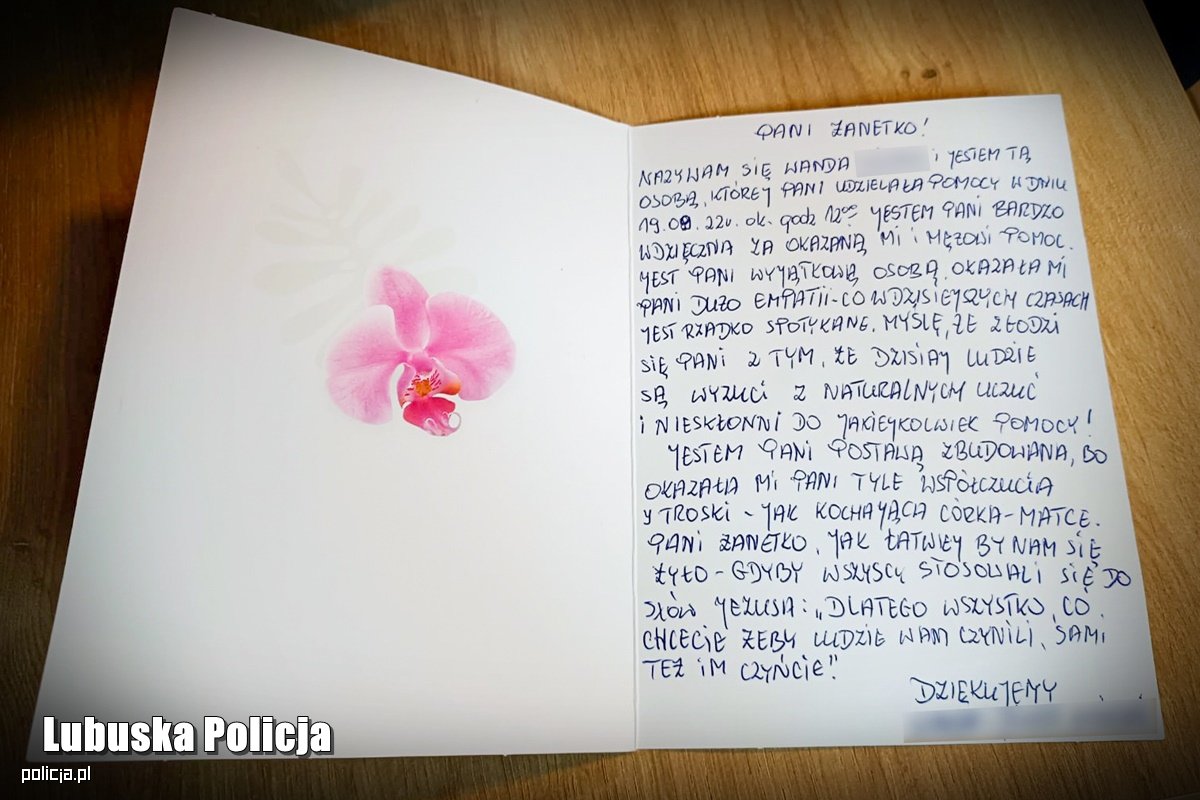 PANI ŻANETKO!
NAZYWAM SIĘ WANDA I JESTEM TĄ
OSOBĄ, KTÓREJ PANI UDZIELAŁA POMOCY W DNIU
19.09.22r. ok. godz 12⁰⁰ JESTEM PANI BARDZO
WDZIĘCZNA ZA OKAZANĄ MI i MĘŻOWI POMOC.
JEST PANI WYJĄTKOWĄ OSOBĄ. OKAZAŁA MI
PANI DUŻO EMPATII-CO W DZISIEJSZYCH CZASACH
JEST RZADKO SPOTYKANE. MYŚLĘ, ŻE ZŁODZI
SIĘ PANI Z TYM, ŻE DZISIAJ LUDZIE
SĄ WYZUCI Z NATURALNYCH UCZUĆ
I NIESKŁONNI DO JAKIEJKOLWIEK POMOCY!
JESTEM PANI POSTAWĄ ZBUDOWANA, BO
OKAZAŁA MI PANI TYLE WSPÓŁCZUCIA
Y TROSKI - JAK KOCHAJĄCA CÓRKA-MATCE.
PANI ŻANETKO, JAK ŁATWIEJ BY NAM SIĘ
ŻYŁO - GDYBY WSZYSCY STOSOWALI SIĘ DO
SŁÓW JEZUSA: „DLATEGO WSZYSTKO, CO
CHCECIE ŻEBY LUDZIE WAM CZYNILI, SAMI
TEŻ IM CZYŃCIE"
DZIĘKUJEMY
Lubuska Policja
policja.pl